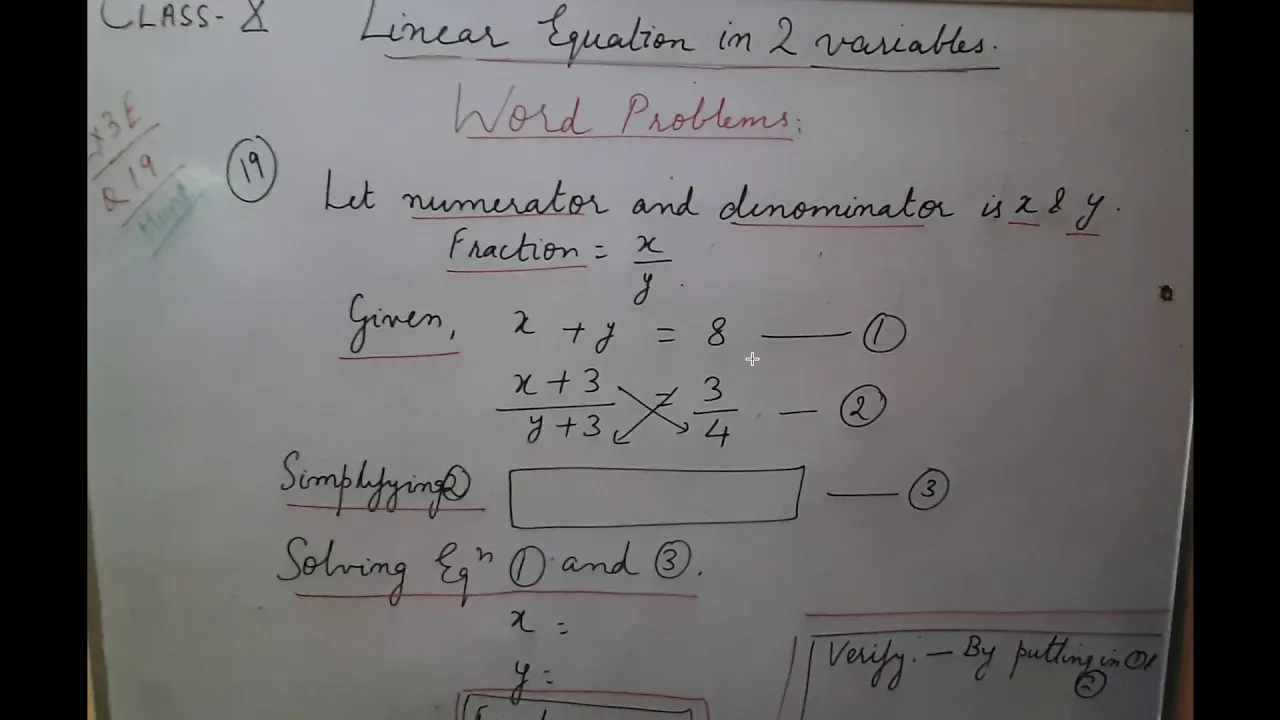 CLASS- X
Linear Equation in 2 variables.
Word Problems:
X3E
Q19
19
Let numerator and denominator is x & y.
Fraction = x/y.
Given, x + y = 8 — 1
x+3/y+3 = 3/4 — 2
Simplifying 2 — 3
Solving Eqn 1 and 3.
x =
y =
Verify. — By putting in
2